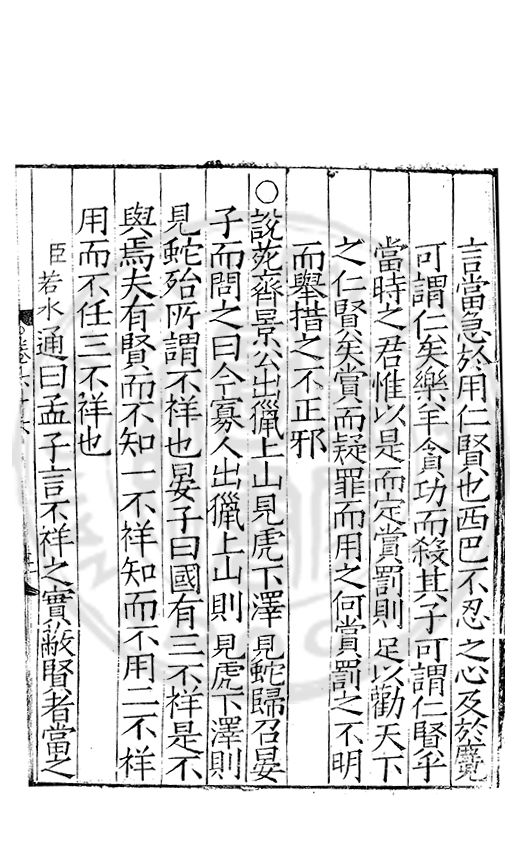 言當急於用仁賢也西巴不忍之心及於麑
可謂仁矣樂羊貪功而殺其子可謂仁賢乎
當時之君惟以是而定賞罰則足以勸天下
之仁賢矣賞而疑罪而用之何賞罰之不明
而舉措之不正邪
○說苑齊景公出獵上山見虎下澤見蛇歸召晏
子而問之曰今寡人出獵上山則見虎下澤則
見蛇殆所謂不祥也晏子曰國有三不祥是不
與焉夫有賢而不知一不祥知而不用二不祥
用而不任三不祥也
臣若水通曰孟子言不祥之實蔽賢者當之